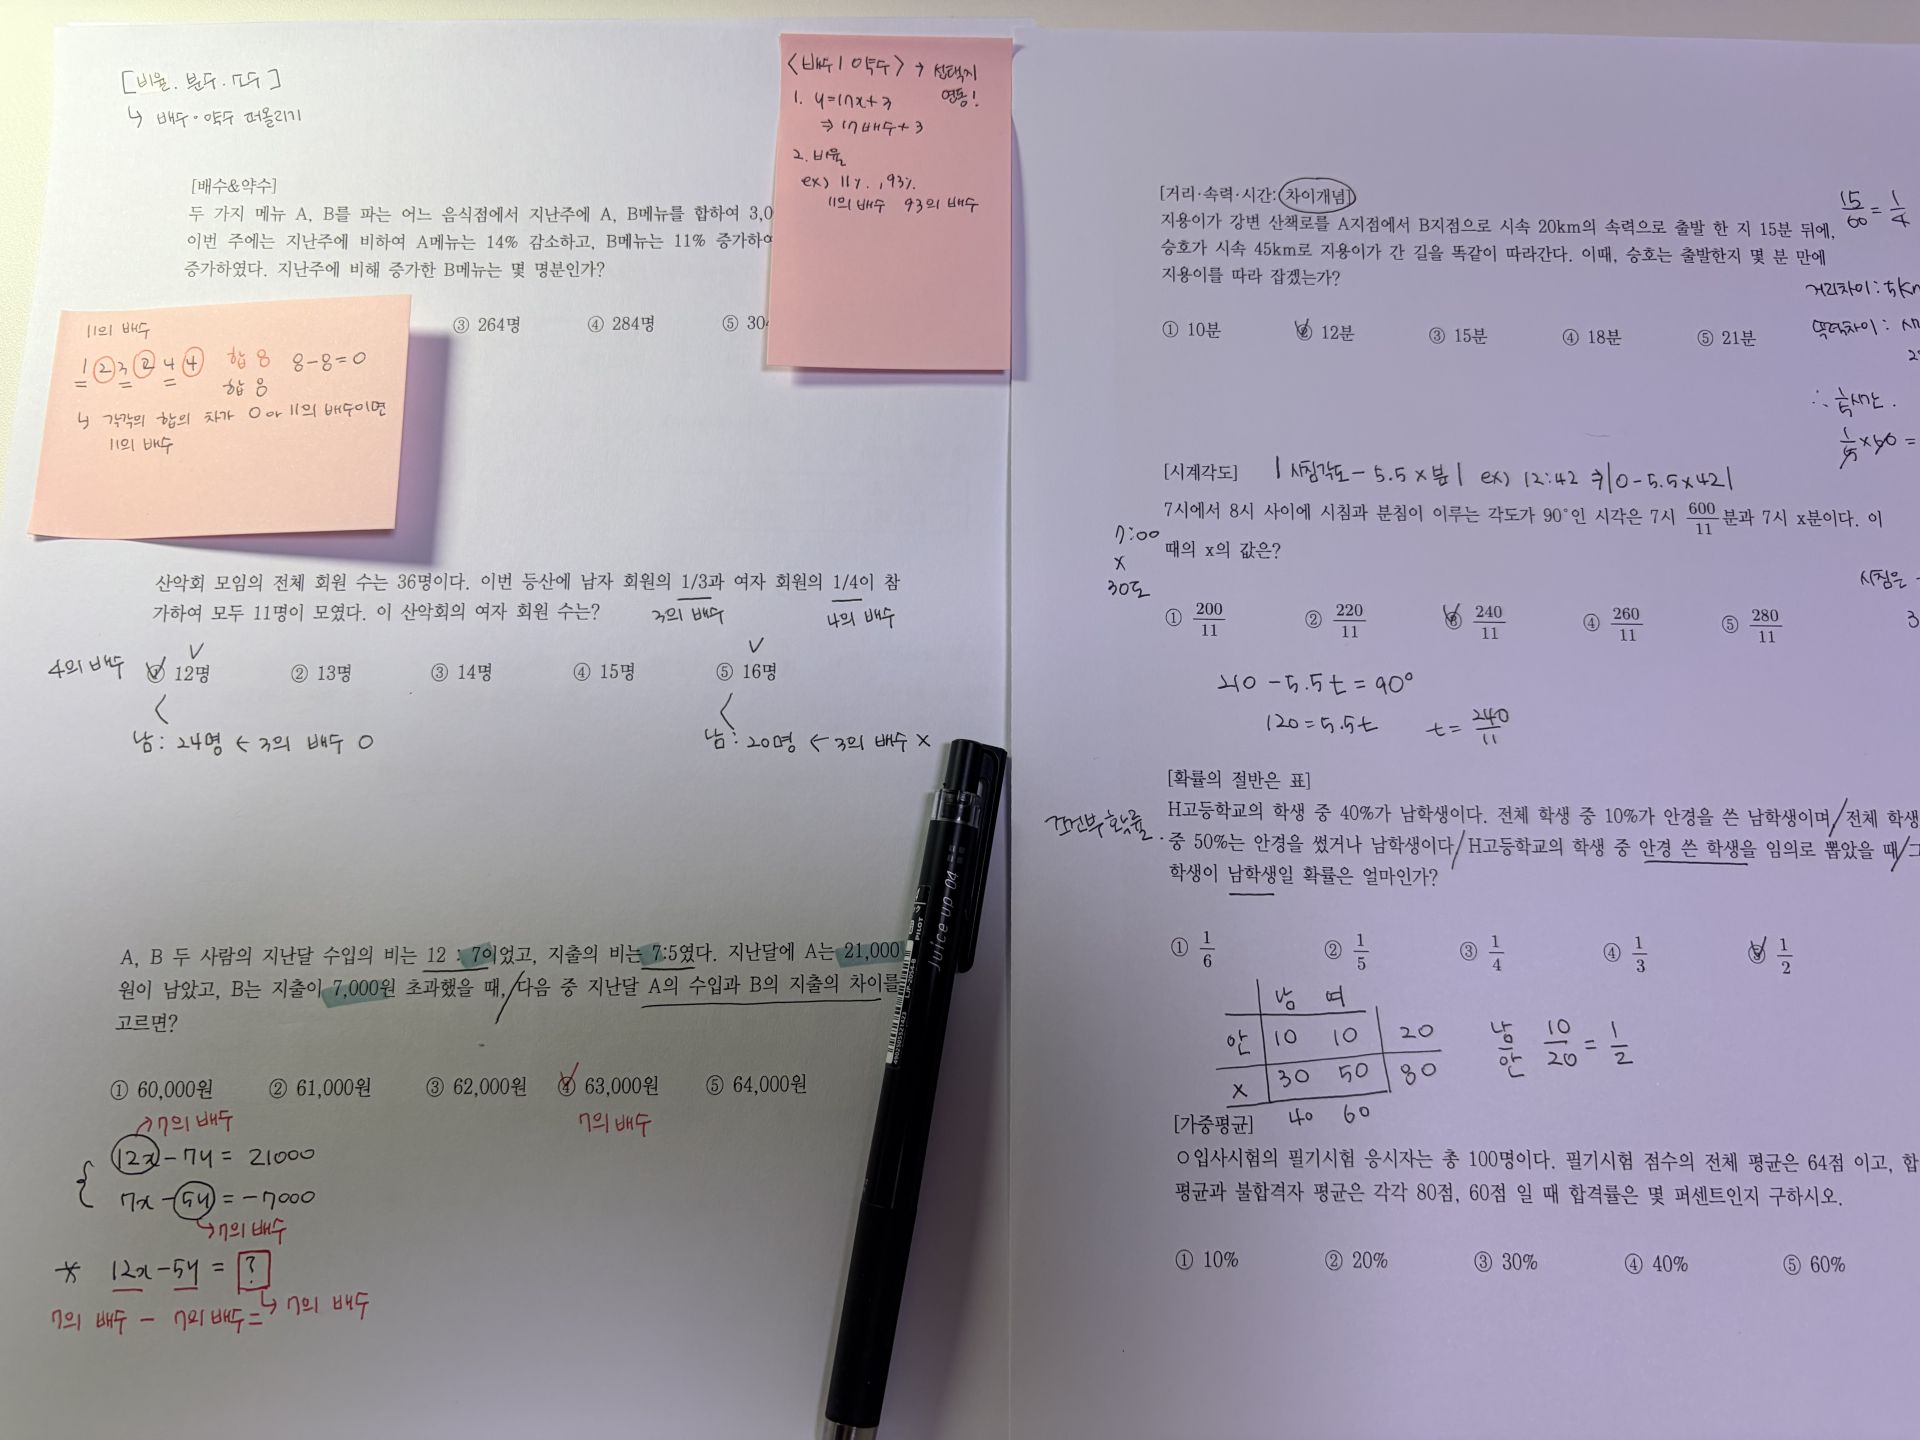 [비율·분수·개수]
↳ 배수·약수 떠올리기
[배수&약수]
두 가지 메뉴 A, B를 파는 어느 음식점에서 지난주에 A, B메뉴를 합하여 3,0
이번 주에는 지난주에 비하여 A메뉴는 14% 감소하고, B메뉴는 11% 증가하여
증가하였다. 지난주에 비해 증가한 B메뉴는 몇 명분인가?
③ 264명 ④ 284명 ⑤ 30
<배수/약수> → 선택지
연동!
1. y=17x+3
⇒ 17배수+3
2. 비율
ex) 11%, 93%
11의 배수 93의 배수
11의 배수
1 2 3 2 4 4 합 8 8-8=0
합 8
↳ 각각의 합의 차가 0 or 11의 배수이면
11의 배수
산악회 모임의 전체 회원 수는 36명이다. 이번 등산에 남자 회원의 1/3과 여자 회원의 1/4이 참
가하여 모두 11명이 모였다. 이 산악회의 여자 회원 수는?
3의 배수 4의 배수
4의 배수 ① 12명 ② 13명 ③ 14명 ④ 15명 ⑤ 16명
남: 24명 ← 3의 배수 O 남: 20명 ← 3의 배수 X
A, B 두 사람의 지난달 수입의 비는 12 : 7이었고, 지출의 비는 7:5였다. 지난달에 A는 21,000
원이 남았고, B는 지출이 7,000원 초과했을 때, 다음 중 지난달 A의 수입과 B의 지출의 차이를
고르면?
① 60,000원 ② 61,000원 ③ 62,000원 ④ 63,000원 ⑤ 64,000원
→7의 배수 7의 배수
12x-7y = 21000
7x-5y = -7000
↳7의 배수
* 12x-5y = ?
↳ 7의 배수
7의 배수 - 7의 배수 =
juice up 04
PILOT
[거리·속력·시간: 차이개념]
15/60 = 1/4
지용이가 강변 산책로를 A지점에서 B지점으로 시속 20km의 속력으로 출발 한 지 15분 뒤에,
승호가 시속 45km로 지용이가 간 길을 똑같이 따라간다. 이때, 승호는 출발한지 몇 분 만에
지용이를 따라 잡겠는가?
거리차이: 5km
① 10분 ② 12분 ③ 15분 ④ 18분 ⑤ 21분
속력차이: 시
∴ 1/5시간.
1/5 × 60 =
[시계각도] | 시침각도 - 5.5 × 분 | ex) 12:42 ⇒ |0-5.5×42|
7시에서 8시 사이에 시침과 분침이 이루는 각도가 90°인 시각은 7시 600/11분과 7시 x분이다. 이
때의 x의 값은?
7:00
x
30도
시침은
① 200/11 ② 220/11 ③ 240/11 ④ 260/11 ⑤ 280/11
210 - 5.5t = 90°
120 = 5.5t t = 240/11
[확률의 절반은 표]
조건부확률.
H고등학교의 학생 중 40%가 남학생이다. 전체 학생 중 10%가 안경을 쓴 남학생이며/전체 학생
중 50%는 안경을 썼거나 남학생이다/H고등학교의 학생 중 안경 쓴 학생을 임의로 뽑았을 때/그
학생이 남학생일 확률은 얼마인가?
① 1/6 ② 1/5 ③ 1/4 ④ 1/3 ⑤ 1/2
남 여
안 10 10 20
x 30 50 80
40 60
남/안 10/20 = 1/2
[가중평균]
○입사시험의 필기시험 응시자는 총 100명이다. 필기시험 점수의 전체 평균은 64점 이고, 합
평균과 불합격자 평균은 각각 80점, 60점 일 때 합격률은 몇 퍼센트인지 구하시오.
① 10% ② 20% ③ 30% ④ 40% ⑤ 60%